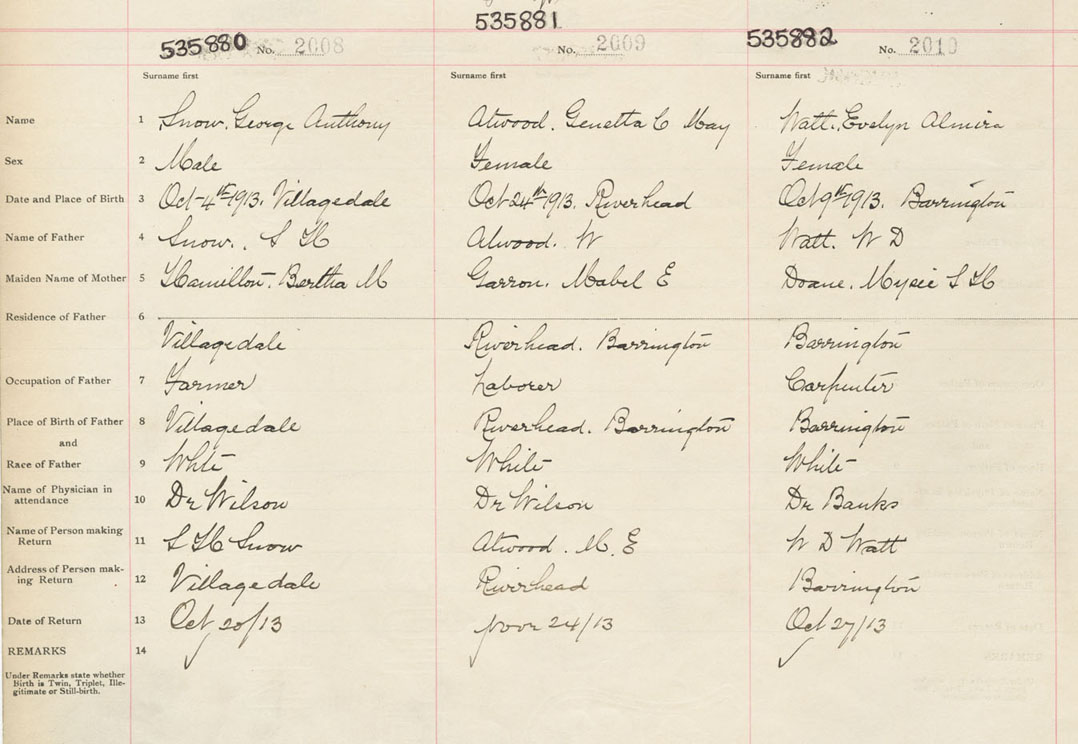 535881
535880 No. 2008 No. 2009 535882 No. 2010
Surname first Surname first Surname first
Name 1 Snow. George Anthony Atwood. Genetta C May Watt. Evelyn Almira
Sex 2 Male Female Female
Date and Place of Birth 3 Oct 4th 1913. Villagedale Oct 24th 1913. Riverhead Oct 9th 1913. Barrington
Name of Father 4 Snow. S H Atwood. W Watt. W D
Maiden Name of Mother 5 Hamilton. Bertha M Garron. Mabel E Doane. Mysie S H
Residence of Father 6
Villagedale Riverhead. Barrington Barrington
Occupation of Father 7 Farmer Laborer Carpenter
Place of Birth of Father 8 Villagedale Riverhead. Barrington Barrington
and
Race of Father 9 White White White
Name of Physician in
attendance 10 Dr Wilson Dr Wilson Dr Banks
Name of Person making
Return 11 S H Snow Atwood. M. E W D Watt
Address of Person mak-
ing Return 12 Villagedale Riverhead Barrington
Date of Return 13 Oct 20/13 Nov 24/13 Oct 27/13
REMARKS 14
Under Remarks state whether
Birth is Twin, Triplet, Ille-
gitimate or Still-birth.